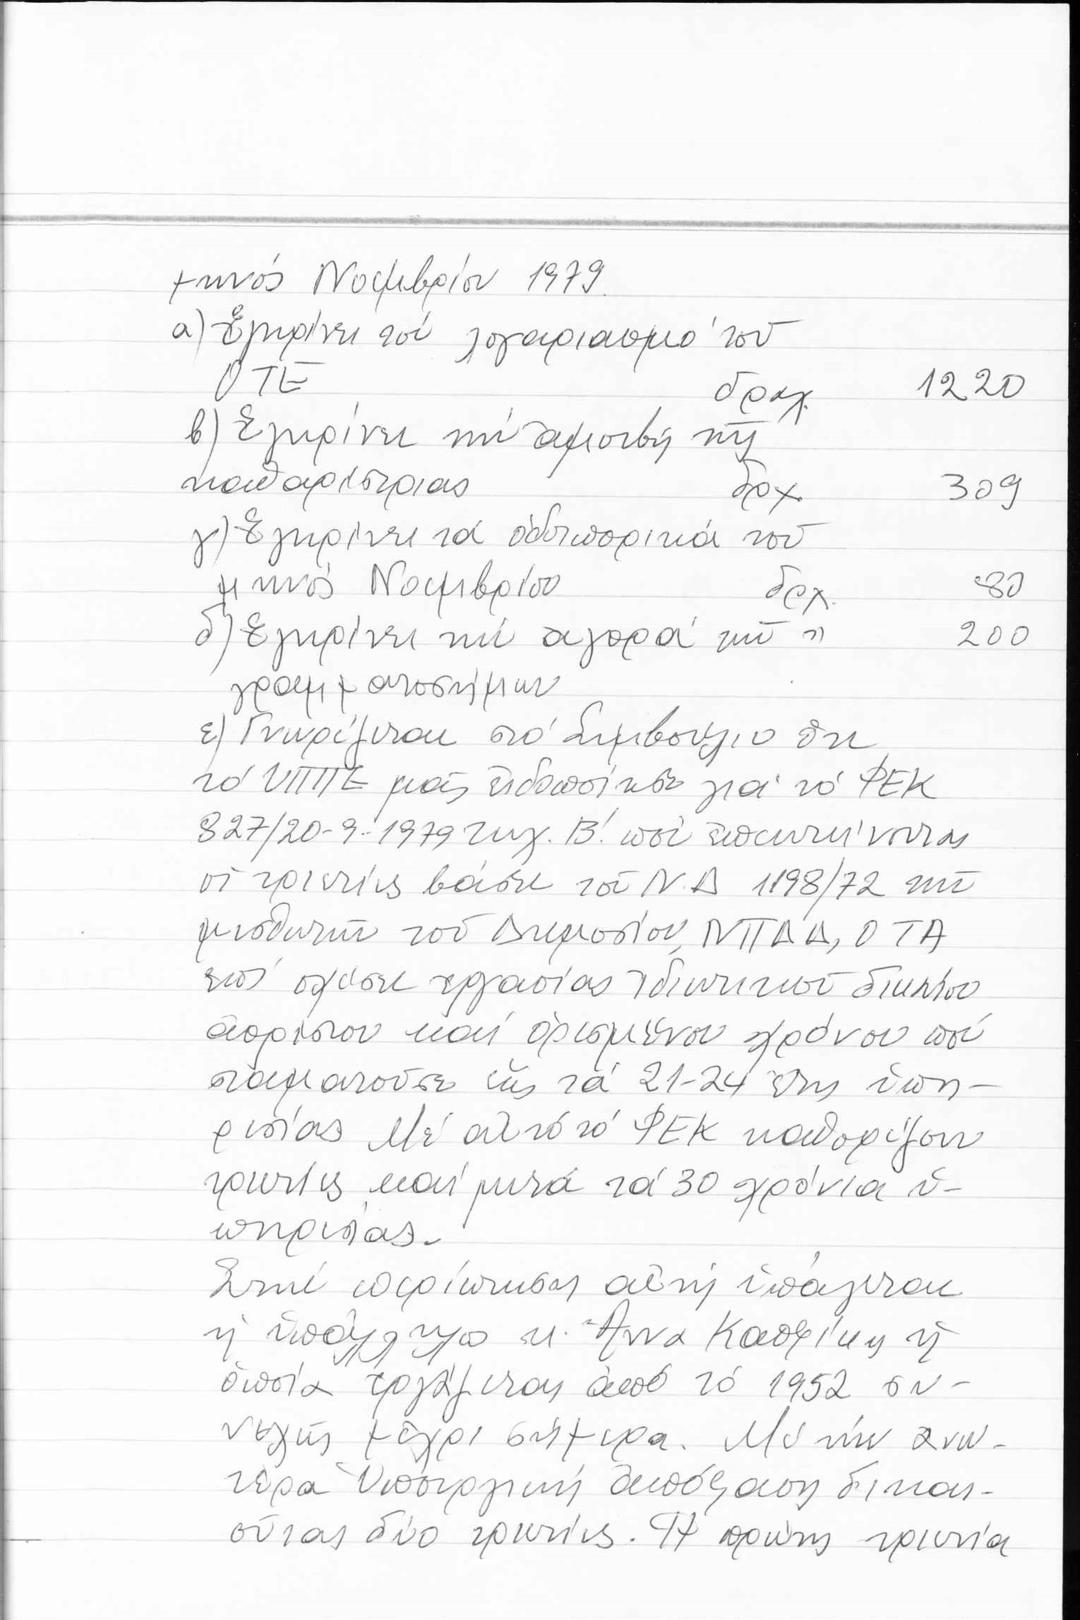 μηνός Νοεμβρίου 1979.
α) Ἐγκρίνει τόν λογαριασμό τοῦ
ΟΤΕ δραχ. 1220
β) Ἐγκρίνει τήν ἀμοιβή τῆς
καθαρίστριας δρχ. 309
γ) Ἐγκρίνει τά ὁδοιπορικά τοῦ
μηνός Νοεμβρίου δρχ. 80
δ) Ἐγκρίνει τήν ἀγορά τῶν " 200
γραμματοσήμων
ε) Γνωρίζεται στό Συμβούλιο ὅτι
τό ΥΠΠΕ μᾶς εἰδοποίησε γιά τό ΦΕΚ
827/20-9-1979 τευχ. Β΄. πού ἐπεκτείνονται
οἱ τριετίες βάσει τοῦ Ν.Δ 1198/72 τῶν
μισθωτῶν τοῦ Δημοσίου, ΝΠΔΔ, ΟΤΑ
ἐπί σχέσει ἐργασίας ἰδιωτικοῦ δικαίου
ἀορίστου καί ὁρισμένου χρόνου πού
σταματοῦσε εἰς τά 21-24 ἔτης ὑπη-
ρεσίας Μέ αὐτό τό ΦΕΚ καθορίζουν
τριετίες καί μετά τά 30 χρόνια ὑ-
πηρεσίας.-
Στήν περίπτωσης αὐτή ὑπάγεται
ἡ ὑπάλληλο κ. Ἄννα ἡ
ὁποία ἐργάζεται ἀπό τό 1952 συ-
νεχῆς μέχρι σήμερα. Μέ τήν ἀνω-
τέρα Ὑπουργική ἀπόφαση δικαι-
οῦται δύο τριετίες. Ἡ πρώτη τριετία